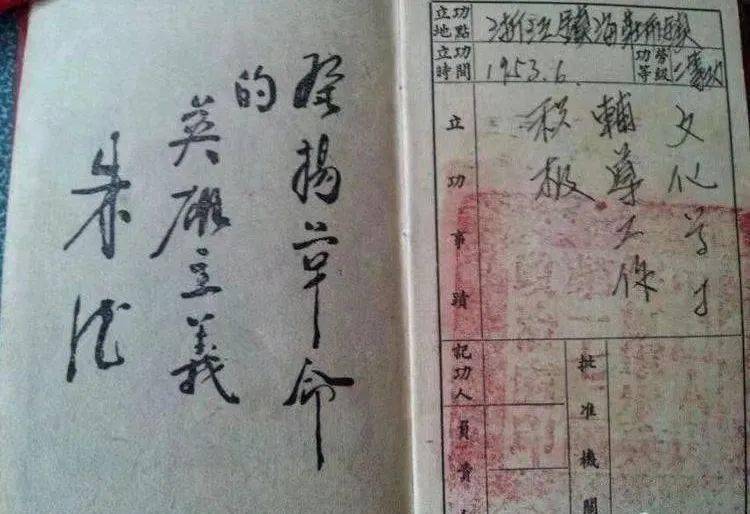 發揚革命
的
英雄主義
朱德
立功地點
浙江鎮海
立功時間
1953.6.
功勞等級
立功事蹟
文化學習
輔導工作
积极
記功人
員責
批准機關